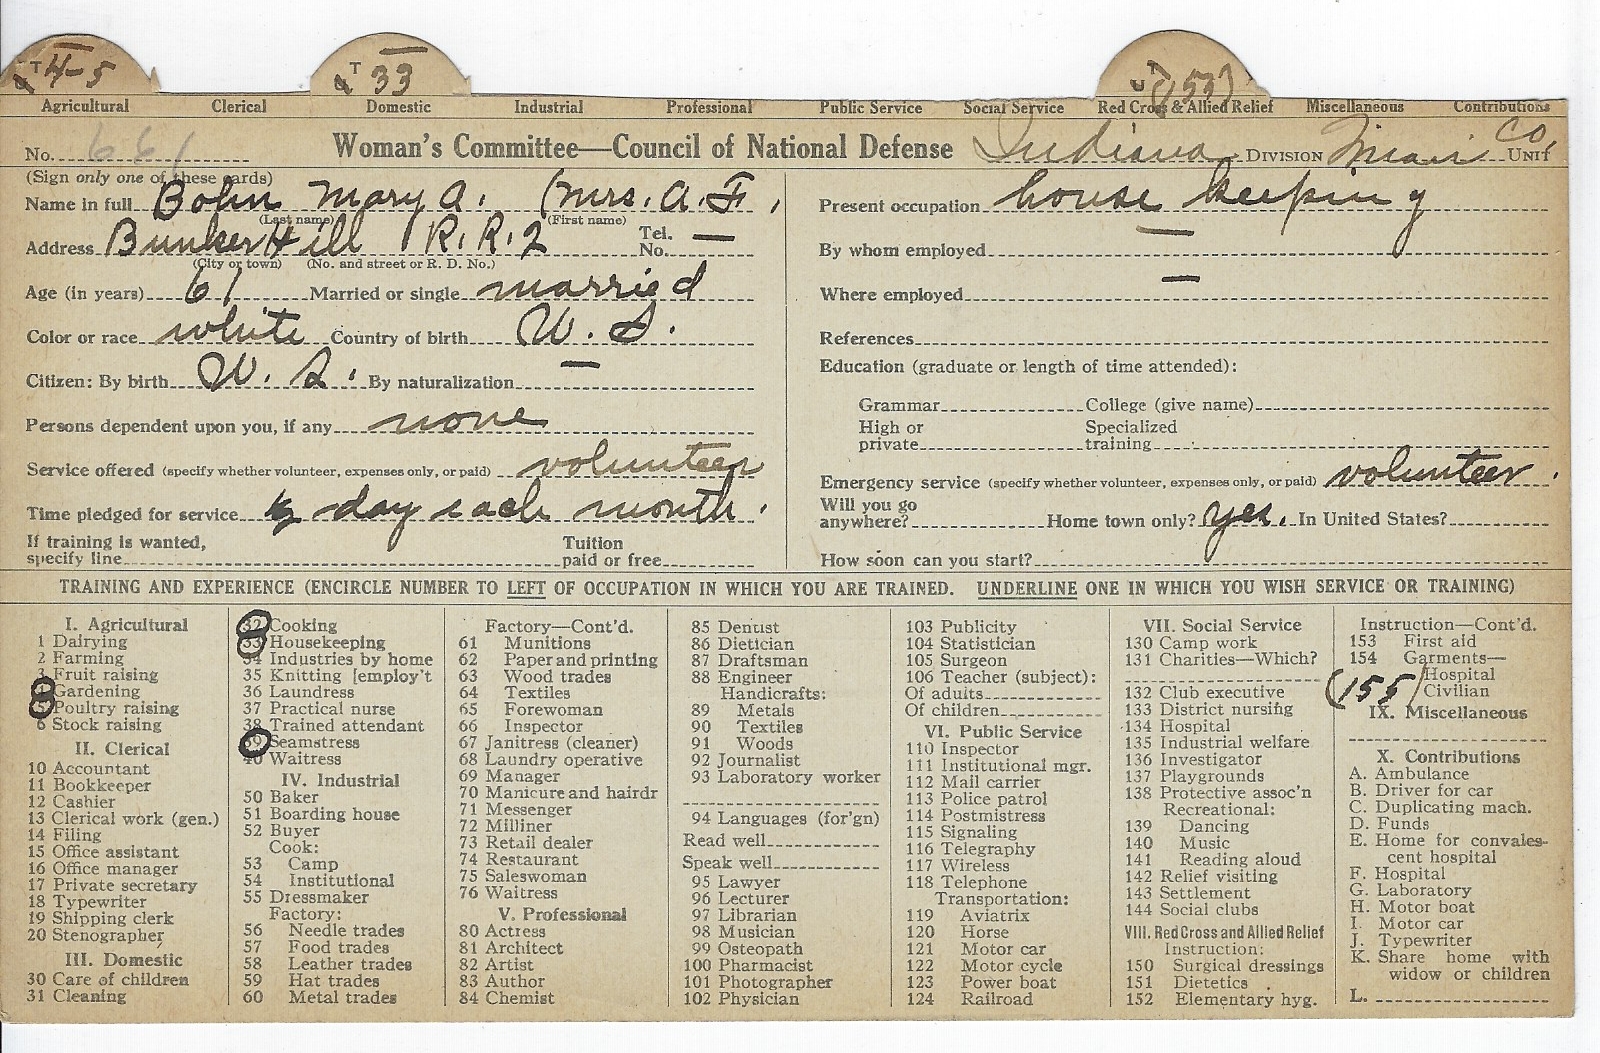 T 4-5 T 33
Agricultural Clerical Domestic Industrial Professional Public Service Social Service Red Cross & Allied Relief Miscellaneous Contributions
No. 661 Woman's Committee—Council of National Defense Indiana DIVISION Miami Co. UNIT
(Sign only one of these cards)
Name in full Bohn Mary A. (Mrs. A. F.
(Last name) (First name)
Address Bunker Hill R.R.2 Tel. No. —
(City or town) (No. and street or R. D. No.)
Age (in years) 61 Married or single married
Color or race white Country of birth U. S.
Citizen: By birth U. S. By naturalization —
Persons dependent upon you, if any none
Service offered (specify whether volunteer, expenses only, or paid) volunteer
Time pledged for service ½ day each month.
If training is wanted, specify line Tuition paid or free
Present occupation house keeping
By whom employed —
Where employed —
References
Education (graduate or length of time attended):
Grammar College (give name)
High or private Specialized training
Emergency service (specify whether volunteer, expenses only, or paid) volunteer.
Will you go anywhere? Home town only? yes. In United States?
How soon can you start?
TRAINING AND EXPERIENCE (ENCIRCLE NUMBER TO LEFT OF OCCUPATION IN WHICH YOU ARE TRAINED. UNDERLINE ONE IN WHICH YOU WISH SERVICE OR TRAINING)
I. Agricultural
1 Dairying
2 Farming
3 Fruit raising
4 Gardening
5 Poultry raising
6 Stock raising
II. Clerical
10 Accountant
11 Bookkeeper
12 Cashier
13 Clerical work (gen.)
14 Filing
15 Office assistant
16 Office manager
17 Private secretary
18 Typewriter
19 Shipping clerk
20 Stenographer
III. Domestic
30 Care of children
31 Cleaning
32 Cooking
33 Housekeeping
34 Industries by home
35 Knitting [employ't
36 Laundress
37 Practical nurse
38 Trained attendant
39 Seamstress
40 Waitress
IV. Industrial
50 Baker
51 Boarding house
52 Buyer
Cook:
53 Camp
54 Institutional
55 Dressmaker
Factory:
56 Needle trades
57 Food trades
58 Leather trades
59 Hat trades
60 Metal trades
Factory—Cont'd.
61 Munitions
62 Paper and printing
63 Wood trades
64 Textiles
65 Forewoman
66 Inspector
67 Janitress (cleaner)
68 Laundry operative
69 Manager
70 Manicure and hairdr
71 Messenger
72 Milliner
73 Retail dealer
74 Restaurant
75 Saleswoman
76 Waitress
V. Professional
80 Actress
81 Architect
82 Artist
83 Author
84 Chemist
85 Dentist
86 Dietician
87 Draftsman
88 Engineer
Handicrafts:
89 Metals
90 Textiles
91 Woods
92 Journalist
93 Laboratory worker
94 Languages (for'gn)
Read well
Speak well
95 Lawyer
96 Lecturer
97 Librarian
98 Musician
99 Osteopath
100 Pharmacist
101 Photographer
102 Physician
103 Publicity
104 Statistician
105 Surgeon
106 Teacher (subject):
Of adults
Of children
VI. Public Service
110 Inspector
111 Institutional mgr.
112 Mail carrier
113 Police patrol
114 Postmistress
115 Signaling
116 Telegraphy
117 Wireless
118 Telephone
Transportation:
119 Aviatrix
120 Horse
121 Motor car
122 Motor cycle
123 Power boat
124 Railroad
VII. Social Service
130 Camp work
131 Charities—Which?
132 Club executive
133 District nursing
134 Hospital
135 Industrial welfare
136 Investigator
137 Playgrounds
138 Protective assoc'n
Recreational:
139 Dancing
140 Music
141 Reading aloud
142 Relief visiting
143 Settlement
144 Social clubs
VIII. Red Cross and Allied Relief
Instruction:
150 Surgical dressings
151 Dietetics
152 Elementary hyg.
Instruction—Cont'd.
153 First aid
154 Garments—
Hospital
(155) Civilian
IX. Miscellaneous
X. Contributions
A. Ambulance
B. Driver for car
C. Duplicating mach.
D. Funds
E. Home for convalescent hospital
F. Hospital
G. Laboratory
H. Motor boat
I. Motor car
J. Typewriter
K. Share home with widow or children
L.